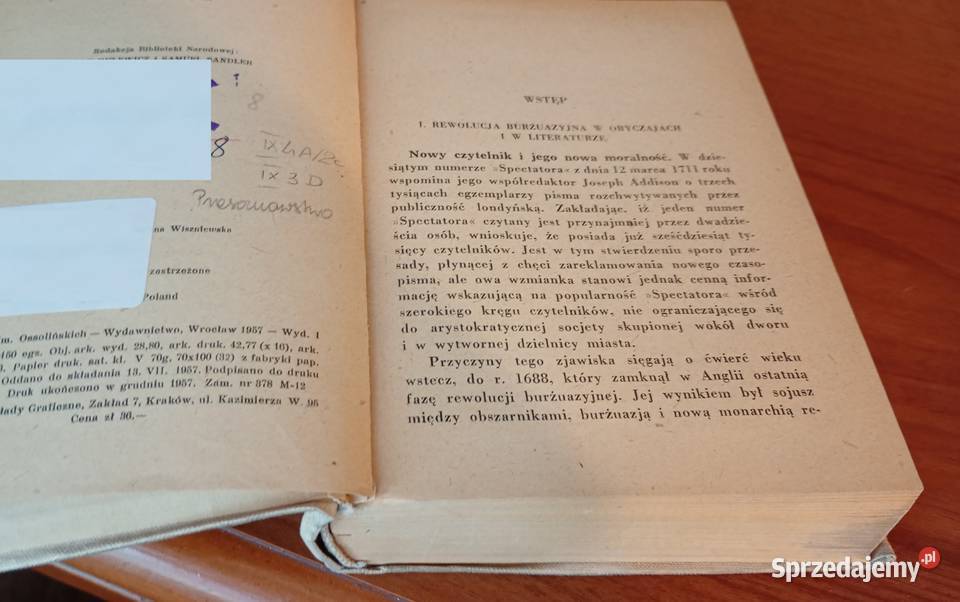 Redakcja Biblioteki Narodowej:
I SAMUEL SANDLER
8
8
IX 4A/2c
IX 3 D
na Wiszniewska
zastrzeżone
Poland
im. Ossolińskich — Wydawnictwo, Wrocław 1957 — Wyd. I
150 egz. Obj. ark. wyd. 28,80, ark. druk. 42,77 (x 16), ark.
Papier druk. sat. kl. V 70g, 70x100 (32) z fabryki pap.
Oddano do składania 13. VII. 1957. Podpisano do druku
Druk ukończono w grudniu 1957. Zam. nr 378 M-12
łady Graficzne, Zakład 7, Kraków, ul. Kazimierza W. 95
Cena zł 36.—
WSTĘP
I. REWOLUCJA BURŻUAZYJNA W OBYCZAJACH
I W LITERATURZE
Nowy czytelnik i jego nowa moralność. W dzie-
siątym numerze »Spectatora« z dnia 12 marca 1711 roku
wspomina jego współredaktor Joseph Addison o trzech
tysiącach egzemplarzy pisma rozchwytywanych przez
publiczność londyńską. Zakładając, iż jeden numer
»Spectatora« czytany jest przynajmniej przez dwadzie-
ścia osób, wnioskuje, że posiada już sześćdziesiąt ty-
sięcy czytelników. Jest w tym stwierdzeniu sporo prze-
sady, płynącej z chęci zareklamowania nowego czaso-
pisma, ale owa wzmianka stanowi jednak cenną infor-
mację wskazującą na popularność »Spectatora« wśród
szerokiego kręgu czytelników, nie ograniczającego się
do arystokratycznej society skupionej wokół dworu
i w wytwornej dzielnicy miasta.
Przyczyny tego zjawiska sięgają o ćwierć wieku
wstecz, do r. 1688, który zamknął w Anglii ostatnią
fazę rewolucji burżuazyjnej. Jej wynikiem był sojusz
między obszarnikami, burżuazją i nową monarchią re-
Sprzedajemy.pl